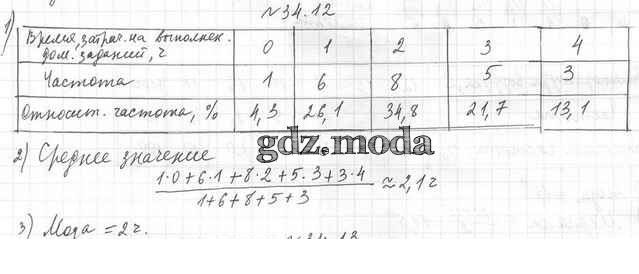 №34.12
1) Время, затрач. на выполнен. дом. заданий, ч 0 1 2 3 4
Частота 1 6 8 5 3
Относит. частота, % 4,3 26,1 34,8 21,7 13,1
2) Среднее значение
gdz.moda
1·0+6·1+8·2+5·3+3·4
1+6+8+5+3
≈2,1 ч
3) Мода = 2 ч.
№34.13